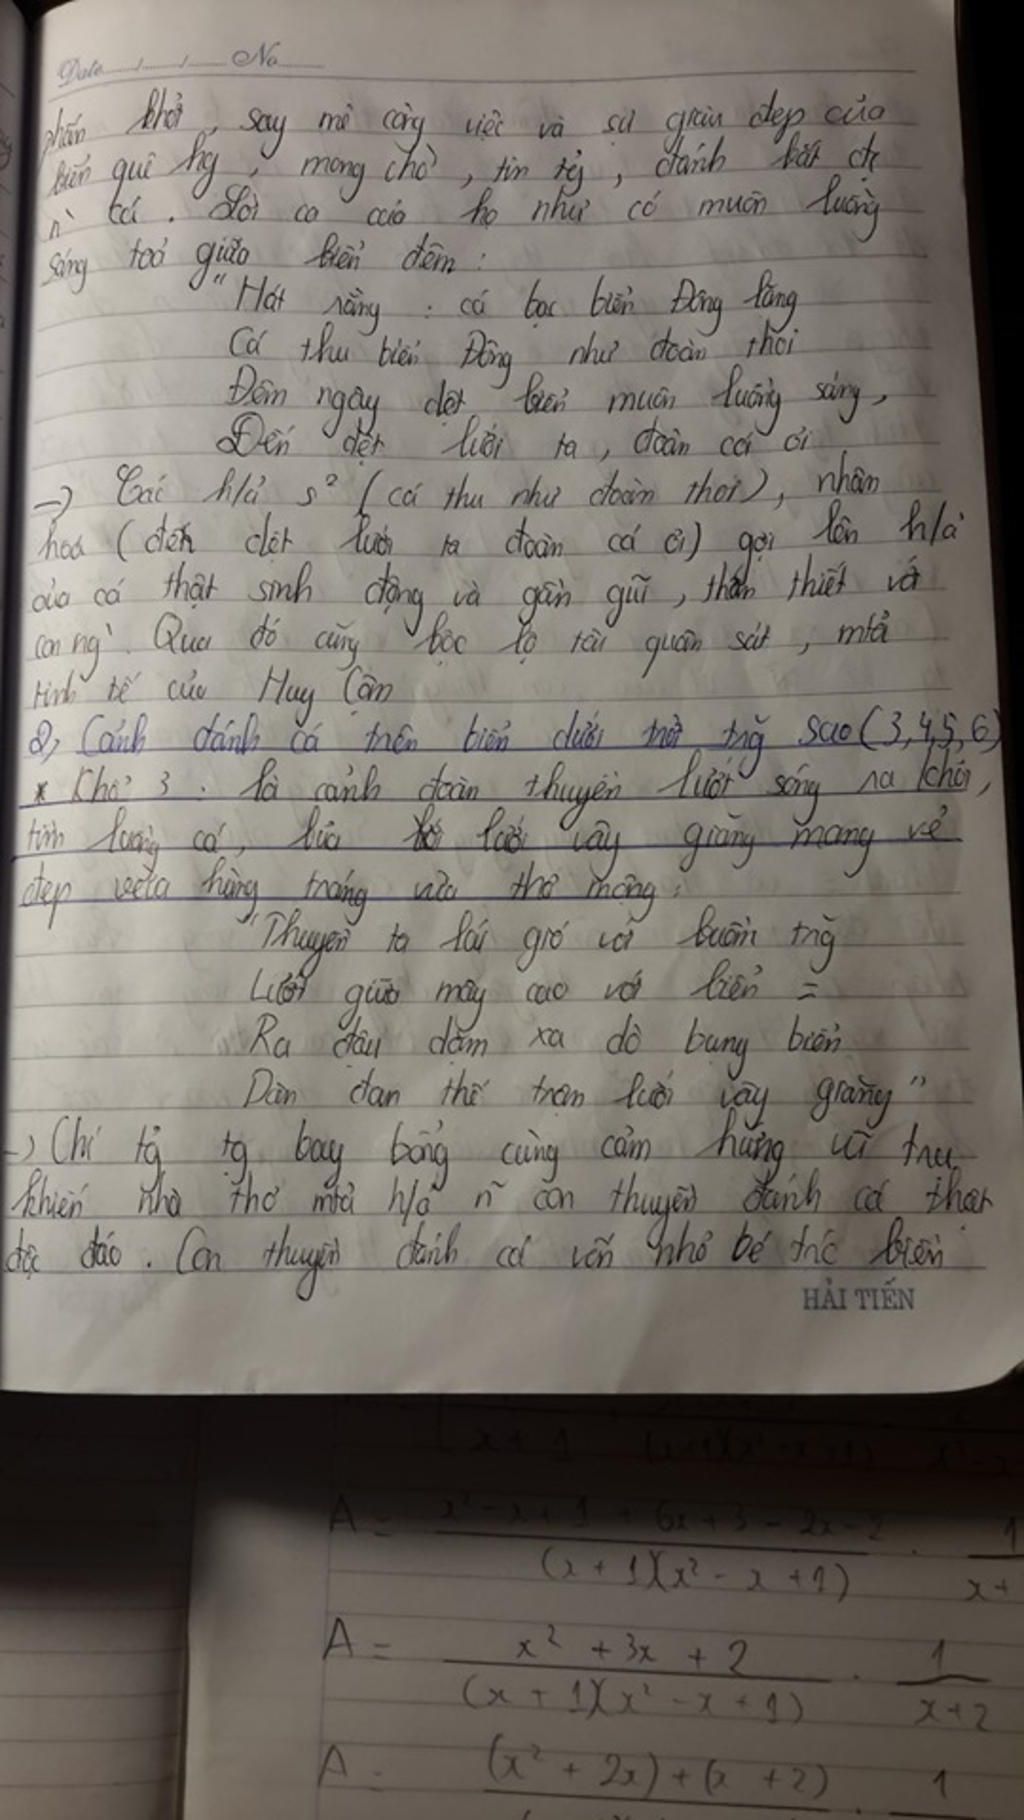 Date / / No
phấn khởi, say mê công việc và sự giàu đẹp của
biển quê hg, mong chờ, tin tg, đánh bắt đc
n` cá. Lời ca của họ như có muôn luồng
sáng toả giữa biển đêm:
"Hát rằng: cá bạc biển Đông lặng
Cá thu biển Đông như đoàn thoi
Đêm ngày dệt biển muôn luồng sáng,
Đến dệt lưới ta, đoàn cá ơi
-> Các h/ả s² (cá thu như đoàn thoi), nhân
hoá (đến dệt lưới ta đoàn cá ơi) gợi lên h/ả
của cá thật sinh động và gần gũi, thân thiết với
con ng`. Qua đó cũng bộc lộ tài quan sát, mtả
tinh tế của Huy Cận
2, Cảnh đánh cá trên biển dưới trời trg sao (3,4,5,6)
* Khổ 3: là cảnh đoàn thuyền lướt sóng ra khơi,
tìm luồng cá, bủa lưới vây giăng mang vẻ
đẹp vừa hùng tráng vừa thơ mộng:
"Thuyền ta lái gió với buồm trg
Lướt giữa mây cao với biển =
Ra đậu dặm xa dò bụng biển
Dàn đan thế trận lưới vây giăng"
-> Chí tg tg bay bổng cùng cảm hứng vũ trụ
khiến nhà thơ mtả h/ả n~ con thuyền đánh cá thật
độc đáo. Con thuyền đánh cá vốn nhỏ bé trc biển
HẢI TIẾN
x + 1
A = x² - x + 1 + 6x + 3 - 2x - 2 / (x + 1)(x² - x + 1) . 1 / x +
A = x² + 3x + 2 / (x + 1)(x² - x + 1) . 1 / x + 2
A = (x² + 2x) + (x + 2) . 1